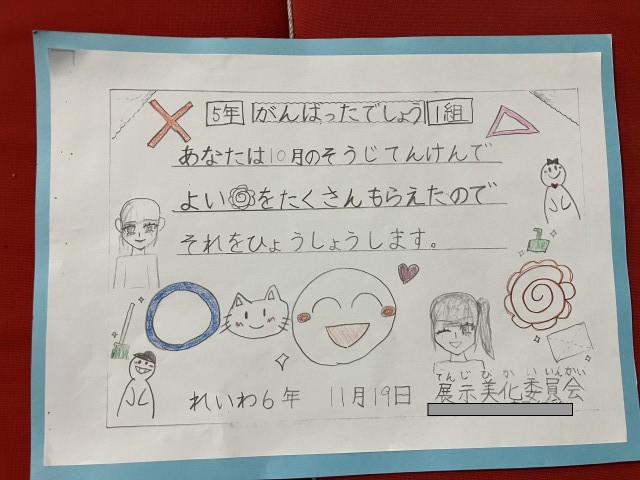 5年 がんばったでしょう 1組
あなたは10月のそうじてんけんで
よい をたくさんもらえたので
それをひょうしょうします。
れいわ6年 11月19日
てんじびかいいんかい
展示美化委員会